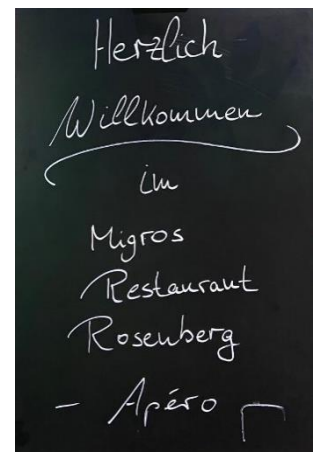 Herzlich
Willkommen
im
Migros
Restaurant
Rosenberg
- Apéro